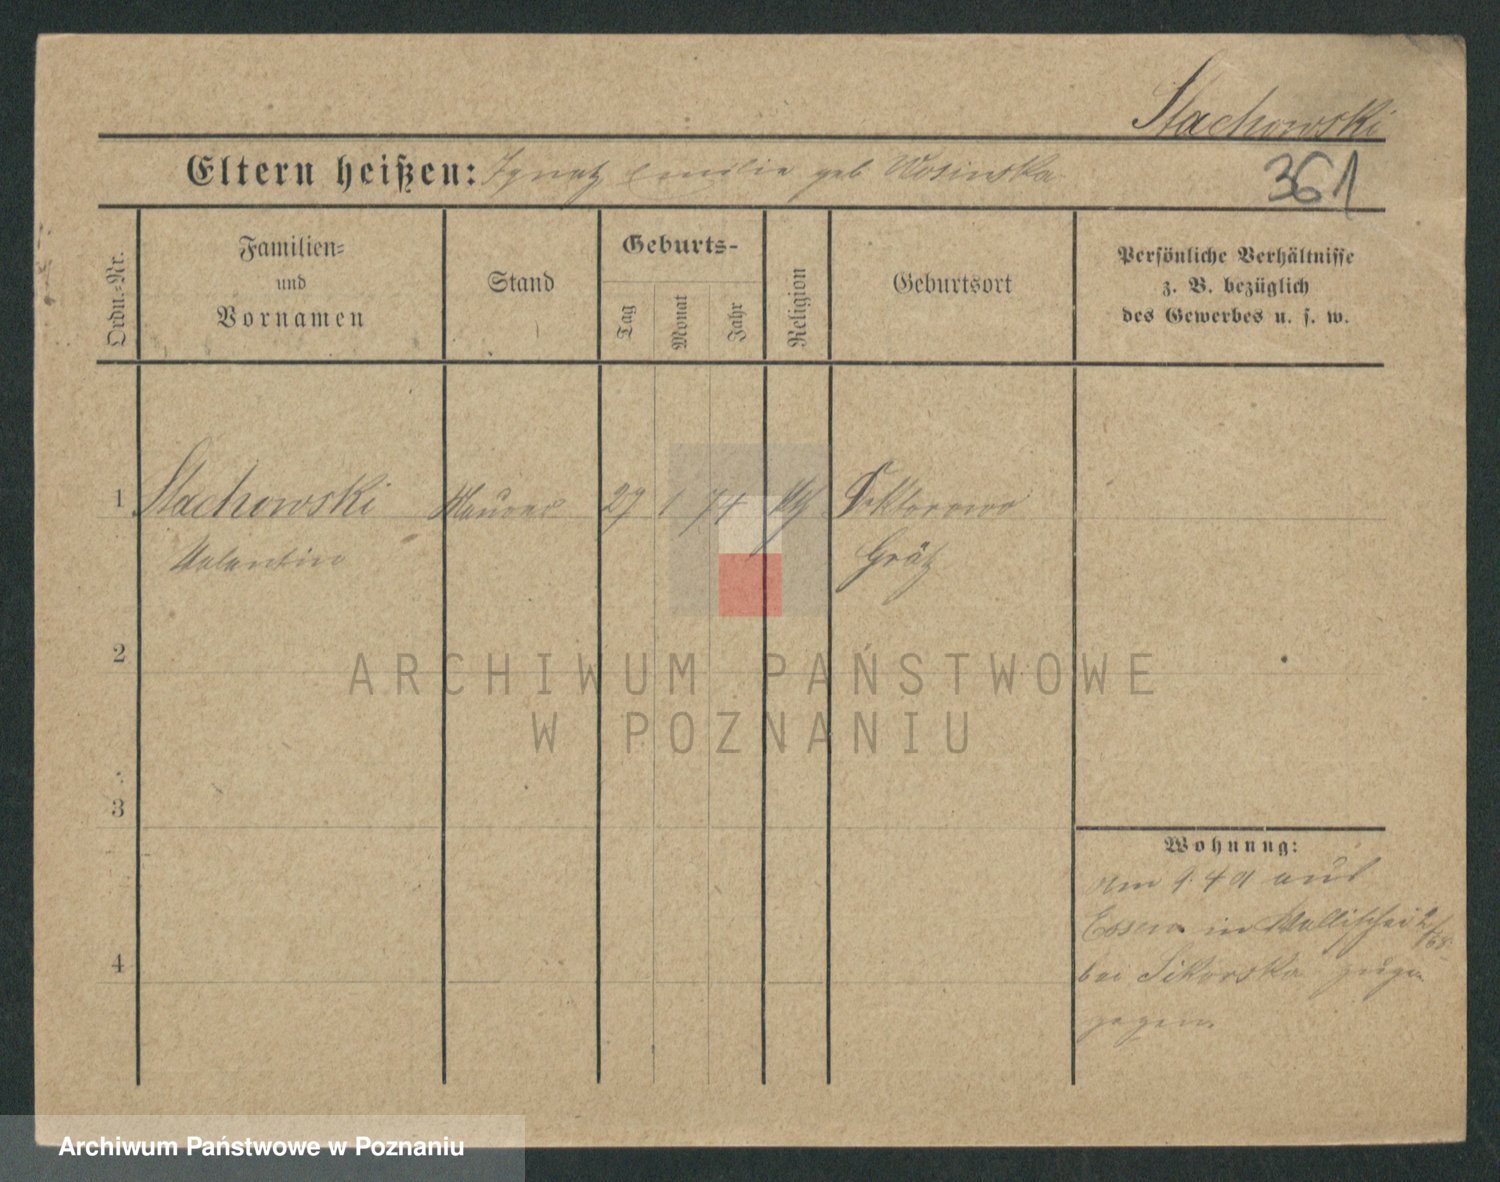 Stachowski
361
Eltern heißen: Ignatz Emilie geb. Wosinska
Ordn.-Nr.
Familien-
und
Vornamen
Stand
Geburts-
Tag
Monat
Jahr
Religion
Geburtsort
Persönliche Verhältnisse
z. B. bezüglich
des Gewerbes u. s. w.
1 Stachowski Maurer 27 1 74 Doktorowo
Valentin Grätz
2
3
4
Wohnung:
Am 1. 4 aus
Essen in Wallischei 2/68
bei Sikorska zuge
zogen
ARCHIWUM PAŃSTWOWE
W POZNANIU
Archiwum Państwowe w Poznaniu